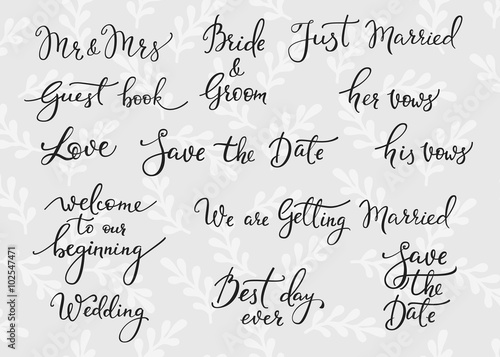 Mr & Mrs
Bride
&
Groom
Just Married
Guest book
her vows
Love
Save the Date
his vows
welcome
to our
beginning
We are Getting Married
Wedding
Best day
ever
Save
the
Date
Adobe Stock | #102547471